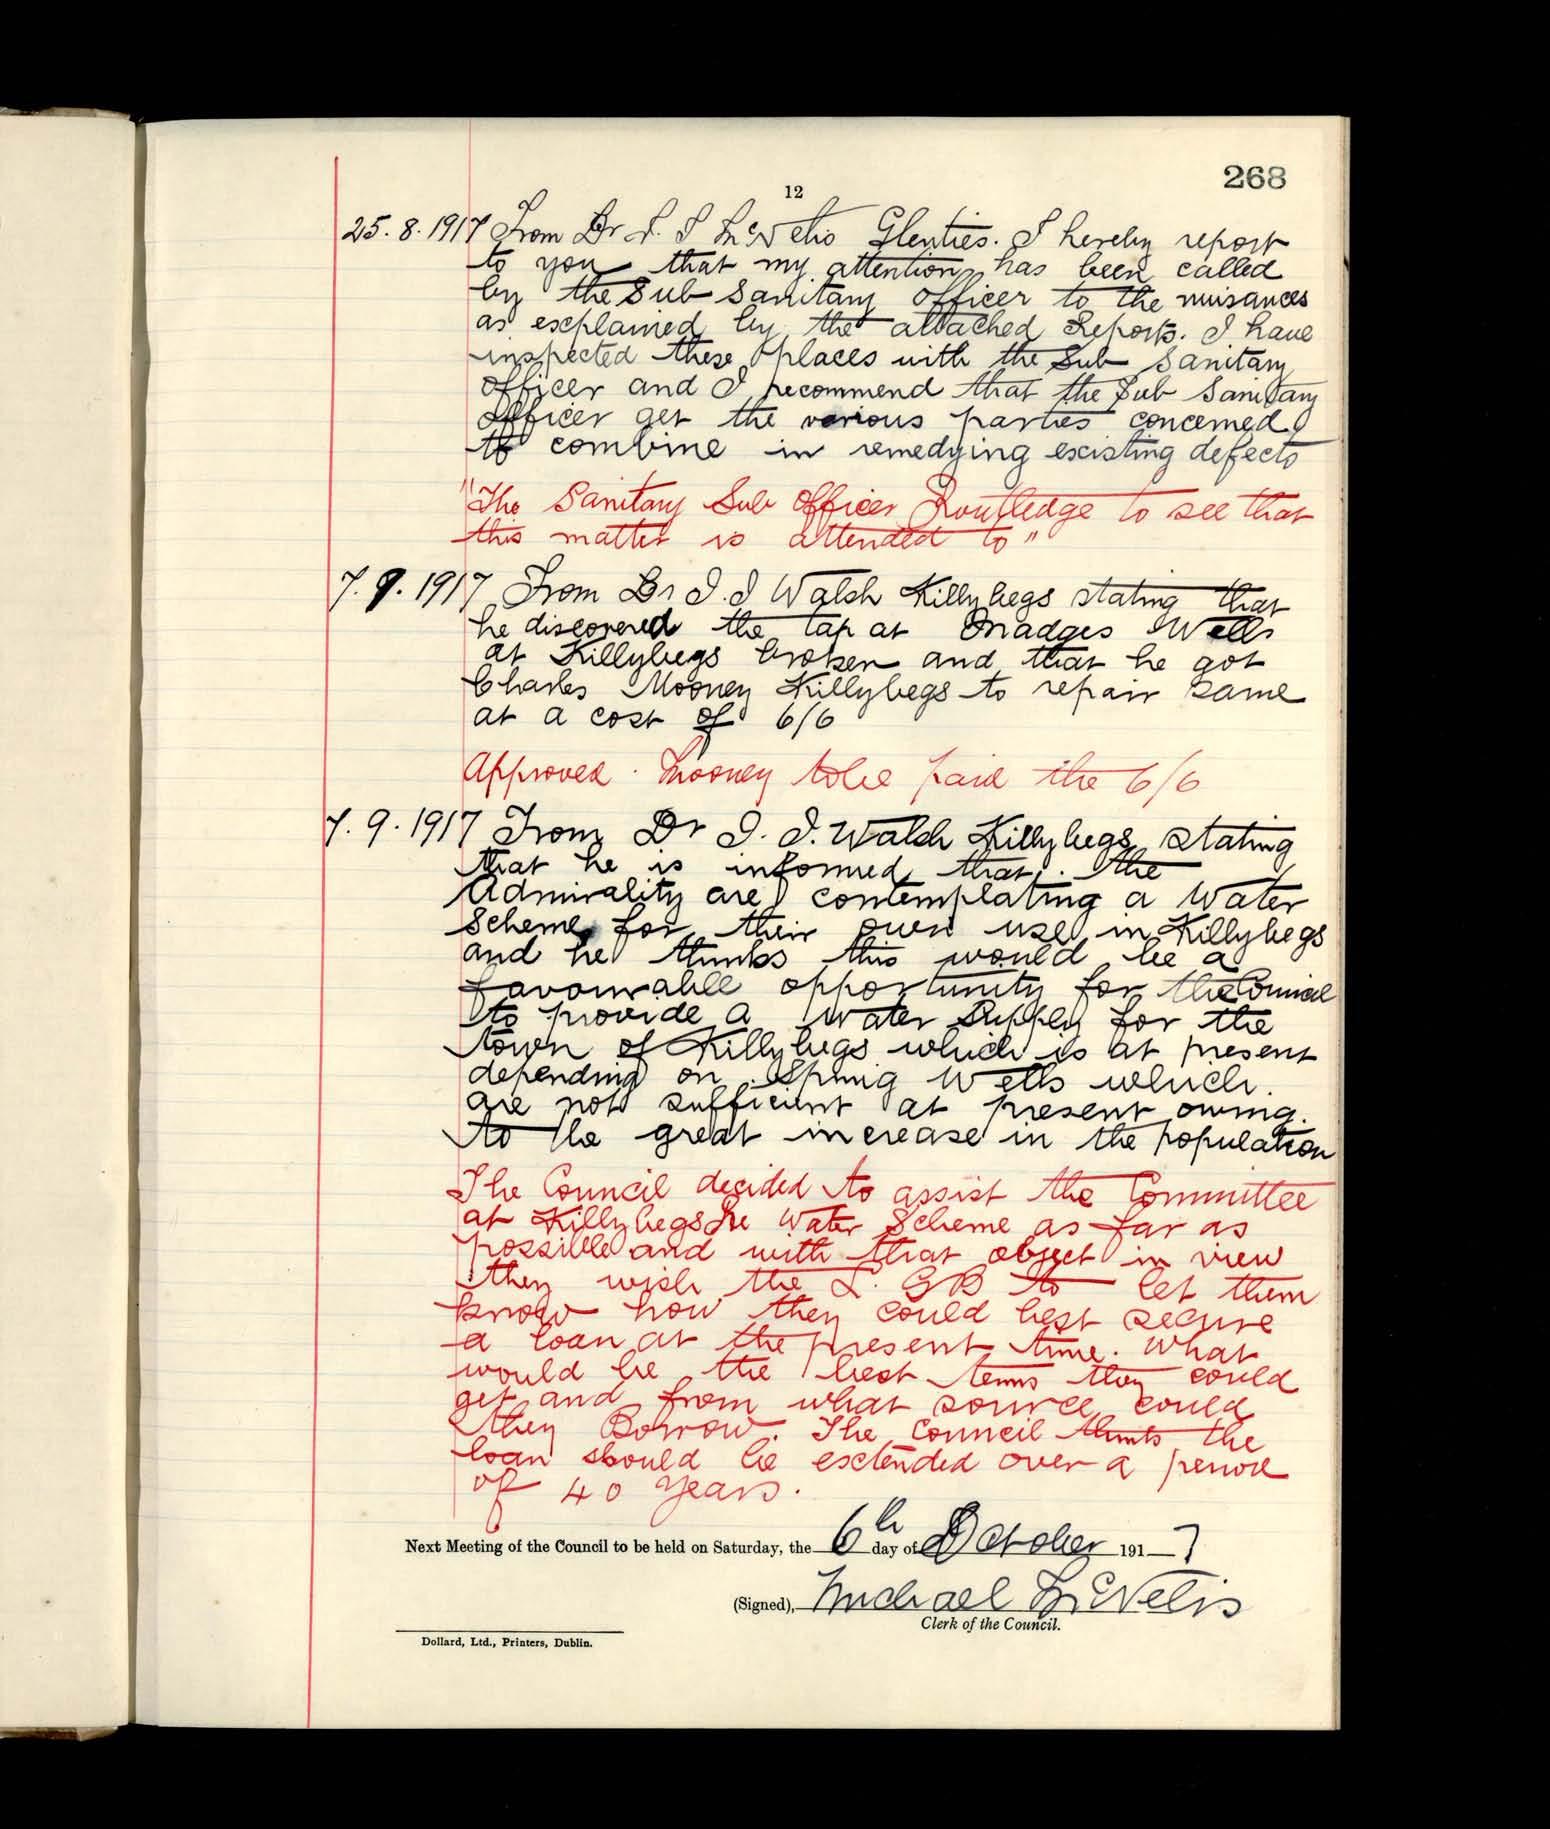 268
12
25.8.1917 From Dr McNelis Glenties. I hereby report
to you that my attention has been called
by the Sub Sanitary Officer to the nuisances
as explained by the attached Reports. I have
inspected these places with the Sub Sanitary
Officer and I recommend that the Sub Sanitary
Officer get the various parties concerned
to combine in remedying existing defects
"The Sanitary Sub Officer Routledge to see that
this matter is attended to"
7.9.1917 From Dr J. J Walsh Killybegs stating that
he discovered the tap at Madges Wells
at Killybegs broken and that he got
Charles Mooney Killybegs to repair same
at a cost of 6/6
Approved. Mooney to be paid the 6/6
7.9.1917 From Dr J. J. Walsh Killybegs stating
that he is informed that the
Admirality are contemplating a Water
Scheme for their own use in Killybegs
and he thinks this would be a
favourable opportunity for the Council
to provide a Water Supply for the
town of Killybegs which is at present
depending on Spring Wells which
are not sufficient at present owing
to the great increase in the population
The Council decided to assist the Committee
at Killybegs re Water Scheme as far as
possible and with that object in view
they wish the L. G B to let them
know how they could best secure
a loan at the present time. What
would be the best terms they could
get and from what source could
they Borrow. The Council thinks the
loan should be extended over a period
of 40 years.
Next Meeting of the Council to be held on Saturday, the 6th day of October 1917
(Signed), Michael McNelis
Clerk of the Council.
Dollard, Ltd., Printers, Dublin.